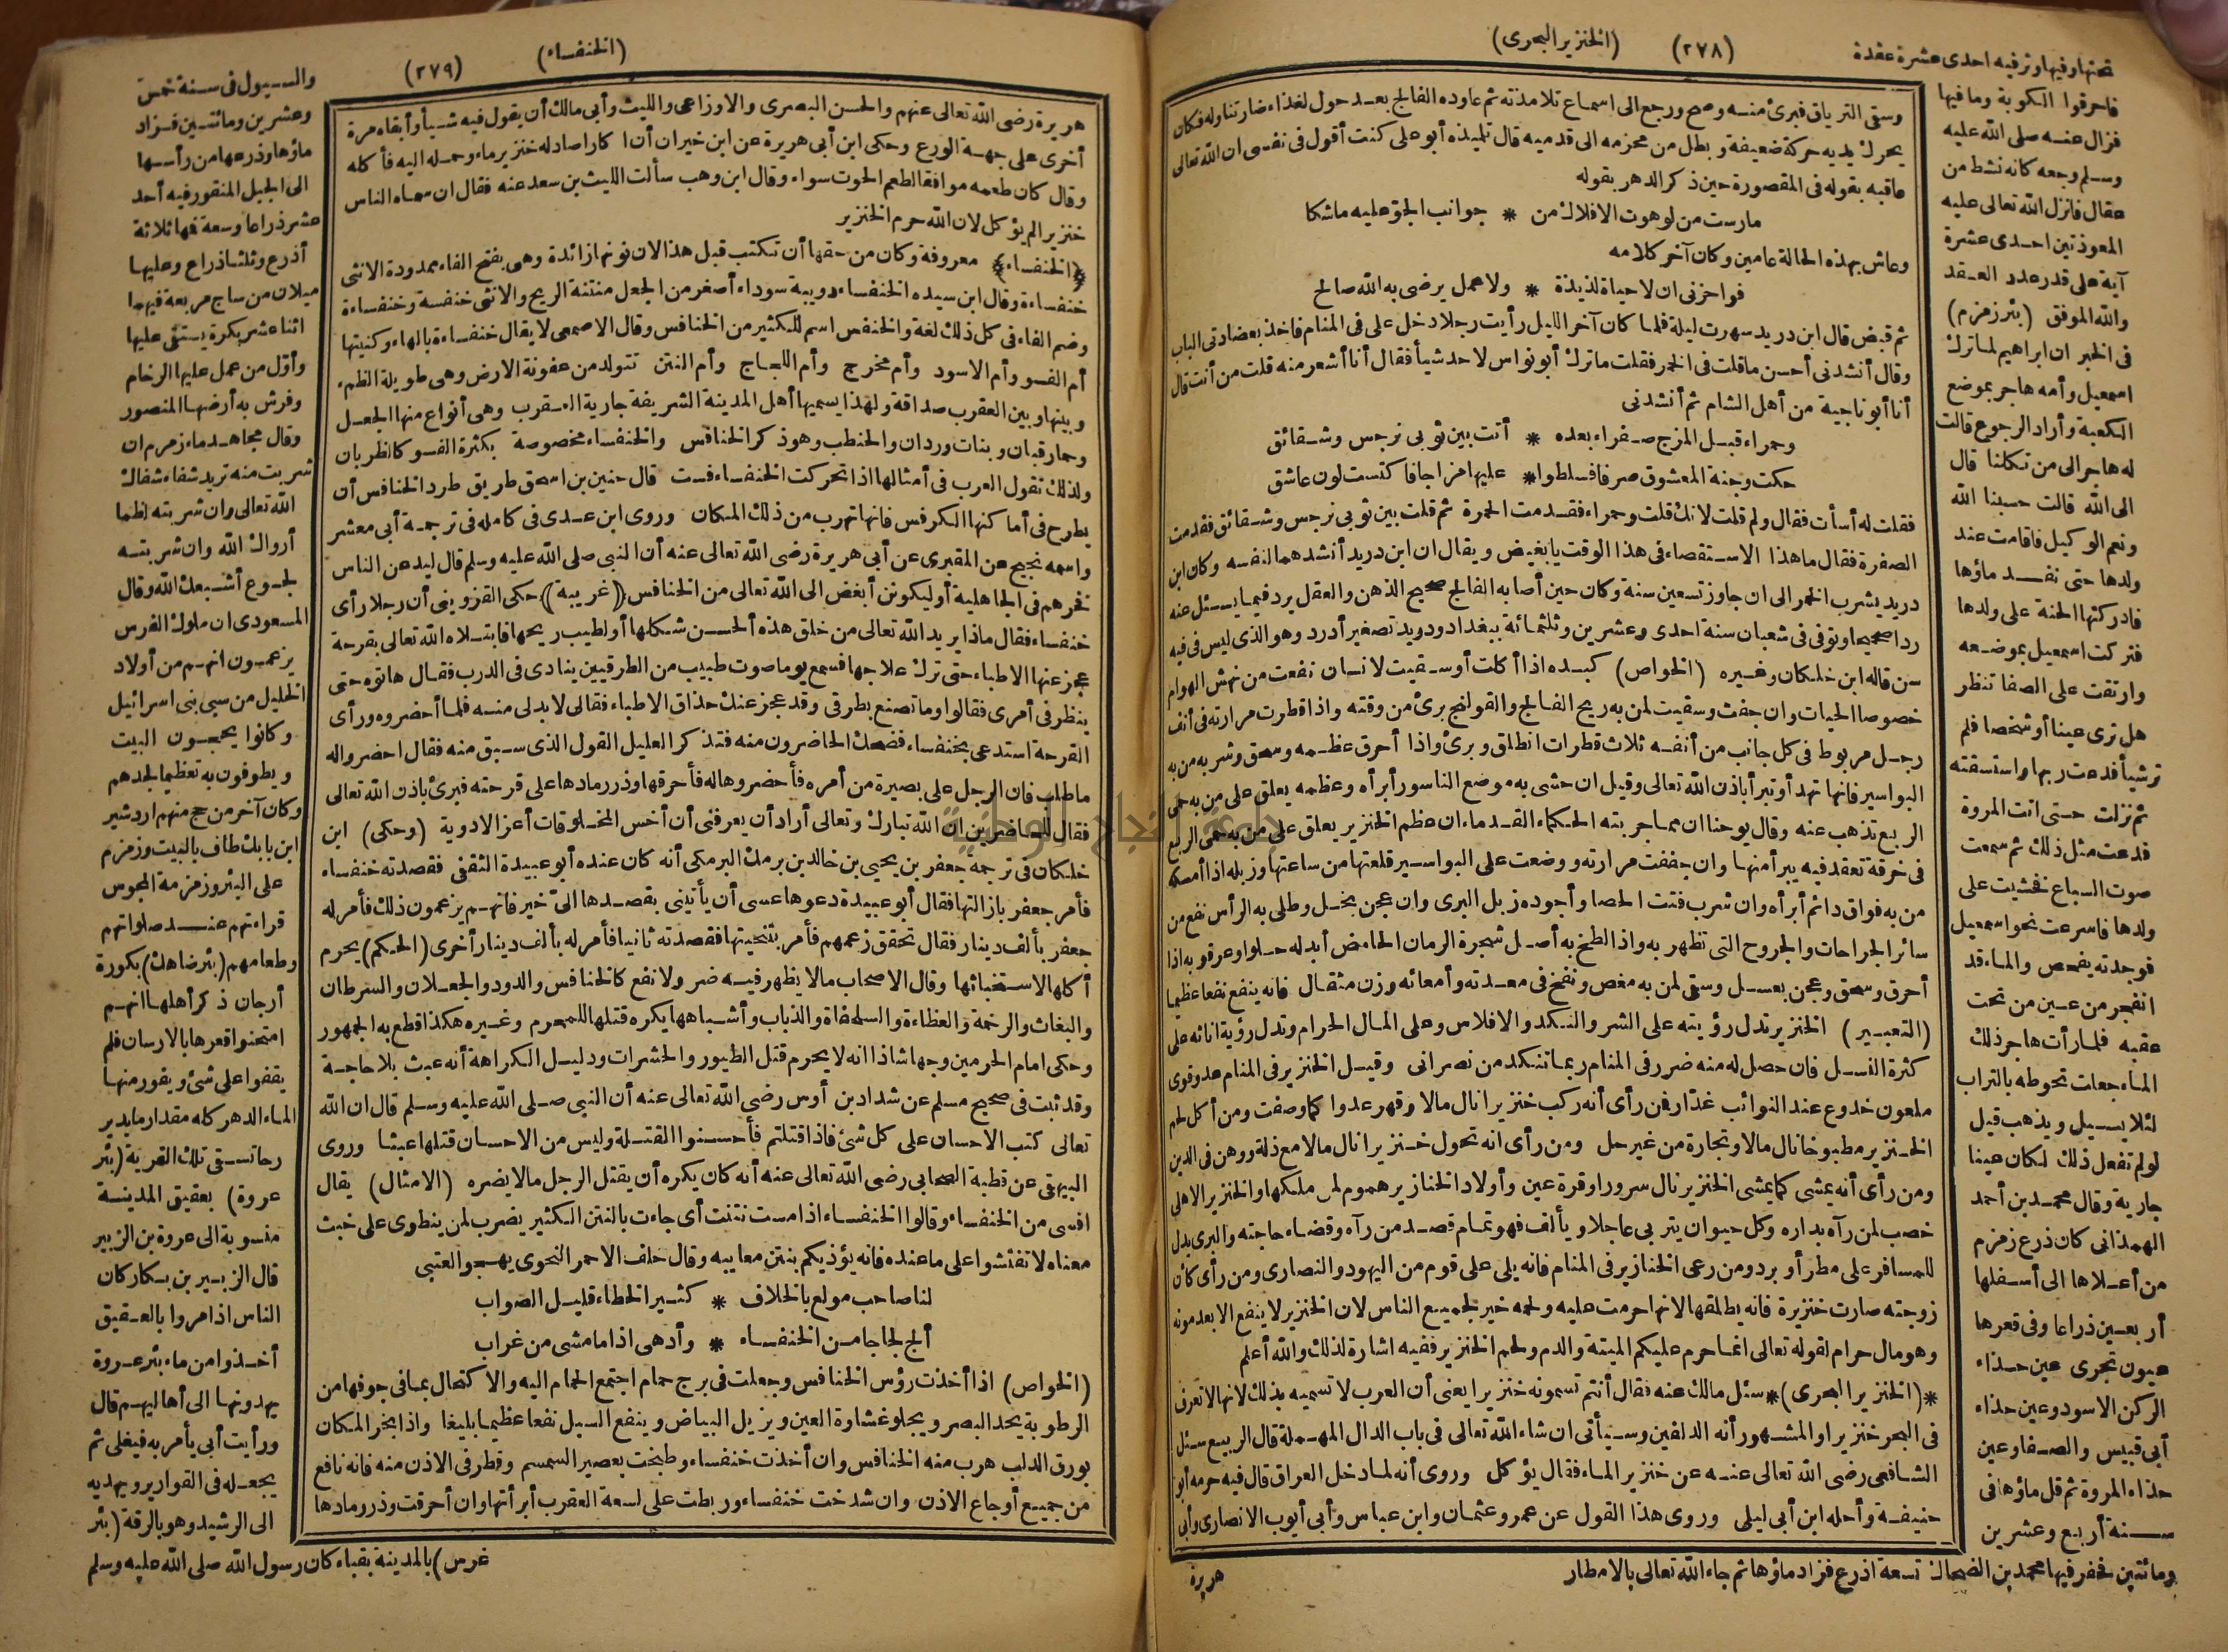 (الخنزير البحرى) (٢٧٨)
وسقى الترياق فبرئ منه وصح ورجع الى اسماع تلامذته ثم عاوده الفالج بعد حول لغذاء ضار تناوله فكان
يحرك يديه حركة ضعيفة وبطل من محزمه الى قدميه قال تلميذه أبو على كنت أقول فى نفسى ان الله تعالى
عاقبه بقوله فى المقصورة حين ذكر الدهر بقوله
مارست من لو هوت الافلاك من * جوانب الجو عليه ماشكا
وعاش بهذه الحالة عامين وكان آخر كلامه
فواحزنى ان لا حياة لذيذة * ولا عمل يرضى به الله صالح
ثم قبض قال ابن دريد سهرت ليلة فلما كان آخر الليل رأيت رجلا دخل على فى المنام فاخذ بعضادتى الباب
وقال أنشدنى أحسن ما قلت فى الخمر فقلت ما ترك أبو نواس لاحد شيأ فقال أنا أشعر منه قلت من أنت قال
أنا أبو ناجية من أهل الشام ثم أنشدنى
وحمراء قبل المزج صفراء بعده * أتت بين ثوبى نرجس وشقائق
حكت وجنة المعشوق صرفا فسلطوا * عليها مزاجا فاكتست لون عاشق
فقلت له أسأت فقال ولم قلت لانك قلت وحمراء فقدمت الحمرة ثم قلت بين ثوبى نرجس وشقائق فقدمت
الصفرة فقال ما هذا الاستقصاء فى هذا الوقت يا بغيض ويقال ان ابن دريد أنشدهما لنفسه وكان ابن
دريد يشرب الخمر الى ان جاوز تسعين سنة وكان حين أصابه الفالج صحيح الذهن والعقل يرد فيما يسئل عنه
ردا صحيحا وتوفى فى شعبان سنة احدى وعشرين وثلثمائة ببغداد ودريد تصغير أدرد وهو الذى ليس فى فيه
سن قاله ابن خلكان وغيره (الخواص) كبده اذا أكلت أو سقيت لانسان نفعت من نهش الهوام
خصوصا الحيات وان جفت وسقيت لمن به ريح الفالج والقولنج برئ من وقته واذا قطرت مرارته فى أنف
رجل مربوط فى كل جانب من أنفه ثلاث قطرات انطلق وبرئ واذا أحرق عظمه وسحق وشربه من به
البواسير فانها تهدأ وتبرأ باذن الله تعالى وقيل ان حشى به موضع الناسور أبرأه وعظمه يعلق على من به حمى
الربع تذهب عنه وقال يوحنا ان مما جربته الحكماء القدماء ان عظم الخنزير يعلق على من به حمى الربع
فى خرقة تعقد فيه يبرأ منها وان جففت مرارته ووضعت على البواسير قلعتها من ساعتها وزبله اذا أمسكه
من به فواق دائم أبرأه وان شرب فتت الحصا وأجوده زبل البرى وان عجن بخل وطلى به الرأس نفع من
سائر الجراحات والجروح التى تظهر به واذا لطخ به أصل شجرة الرمان الحامض أبدله حلوا وعرقوبه اذا
أحرق وسحق وعجن بعسل وسقى لمن به مغص ونفخ فى معدته وأمعائه وزن مثقال فانه ينفع نفعا عظيما
(التعبير) الخنزير تدل رؤيته على الشر والنكد والافلاس وعلى المال الحرام وتدل رؤية اناثه على
كثرة النسل فان حصل له منه ضرر فى المنام ربما تنكد من نصرانى وقيل الخنزير فى المنام عدو قوى
ملعون خدوع عند النوائب غدار فمن رأى أنه ركب خنزيرا نال مالا وقهر عدوا كما وصفت ومن أكل لحم
الخنزير مطبوخا نال مالا وتجارة من غير حل ومن رأى انه تحول خنزيرا نال مالا مع ذلة ووهن فى الدين
ومن رأى أنه يمشى كما يمشى الخنزير نال سرورا وقرة عين وأولاد الخنازير هموم لمن ملكها والخنزير الاهلى
خصب لمن رآه بداره وكل حيوان يتربى عاجلا ويألف فهو تمام قصد من رآه وقضاء حاجته والبرى يدل
للمسافر على مطر أو برد ومن رعى الخنازير فى المنام فانه يلى على قوم من اليهود والنصارى ومن رأى كأن
زوجته صارت خنزيرة فانه يطلقها لانها حرمت عليه ولحمه خير لجميع الناس لان الخنزير لا ينفع الا بعد موته
وهو مال حرام لقوله تعالى انما حرم عليكم الميتة والدم ولحم الخنزير ففيه اشارة لذلك والله أعلم
*(الخنزير البحرى)* سئل مالك عنه فقال أنتم تسمونه خنزيرا يعنى أن العرب لا تسميه بذلك لانها لا تعرف
فى البحر خنزيرا والمشهور أنه الدلفين وسيأتى ان شاء الله تعالى فى باب الدال المهملة قال الربيع سئل
الشافعى رضى الله تعالى عنه عن خنزير الماء فقال يؤكل وروى أنه لما دخل العراق قال فيه حرمه أبو
حنيفة وأحله ابن أبى ليلى وروى هذا القول عن عمر وعثمان وابن عباس وأبى أيوب الانصارى وأبى
هريرة
تحتها وفيها وترفيه احدى عشرة عقدة
فاحرقوا الكوبة وما فيها
فزال عنه صلى الله عليه
وسلم وجعه كانه نشط من
عقال فانزل الله تعالى عليه
المعوذتين احدى عشرة
آية على قدر عدد العقد
والله الموفق (بئر زمزم)
فى الخبر ان ابراهيم لما ترك
اسمعيل وأمه هاجر بموضع
الكعبة وأراد الرجوع قالت
له هاجر الى من تكلنا قال
الى الله قالت حسبنا الله
ونعم الوكيل فاقامت عند
ولدها حتى نفد ماؤها
فادركتها الحنة على ولدها
فتركت اسمعيل بموضعه
وارتقت على الصفا تنظر
هل ترى عينا أو شخصا فلم
تر شيأ فدعت ربها واستسقته
ثم نزلت حتى اتت المروة
فدعت مثل ذلك ثم سمعت
صوت السباع فخشيت على
ولدها فاسرعت نحو اسمعيل
فوجدته يفحص والماء قد
انفجر من عين من تحت
عقبه فلما رأت هاجر ذلك
الماء جعلت تحوطه بالتراب
لئلا يسيل ويذهب قيل
لو لم تفعل ذلك لكان عينا
جارية وقال محمد بن أحمد
الهمذانى كان ذرع زمزم
من أعلاها الى أسفلها
أربعين ذراعا وفى قعرها
عيون تجرى عين حذاء
الركن الاسود وعين حذاء
أبى قبيس والصفا وعين
حذاء المروة ثم قل ماؤها فى
سنة أربع وعشرين
ومائتين فحفر فيها محمد بن الضحاك تسعة اذرع فزاد ماؤها ثم جاء الله تعالى بالامطار
(الخنفساء) (٢٧٩)
هريرة رضى الله تعالى عنهم والحسن البصرى والاوزاعى والليث وأبى مالك أن يقول فيه شيأ وأبقاه مرة
أخرى على جهة الورع وحكى ابن أبى هريرة عن ابن خيران أن أكارا صاد له خنزير ماء وحمله اليه فأكله
وقال كان طعمه موافقا لطعم الحوت سواء وقال ابن وهب سألت الليث بن سعد عنه فقال ان سماه الناس
خنزيرا لم يؤكل لان الله حرم الخنزير
(الخنفساء) معروفة وكان من حقها أن تكتب قبل هذا لان نونها زائدة وهى بفتح الفاء ممدودة الانثى
خنفساءة وقال ابن سيده الخنفساء دويبة سوداء أصغر من الجعل منتنة الريح والانثى خنفسة وخنفساءة
وضم الفاء فى كل ذلك لغة والخنفس اسم للكثير من الخنافس وقال الاصمعى لا يقال خنفساءة بالهاء وكنيتها
أم الفسو وأم الاسود وأم مخرج وأم اللجاج وأم النتن تتولد من عفونة الارض وهى طويلة الظمء
وبينها وبين العقرب صداقة ولهذا يسميها أهل المدينة الشريفة جارية العقرب وهى أنواع منها الجعل
وحمار قبان وبنات وردان والحنطب وهو ذكر الخنافس والخنفساء مخصوصة بكثرة الفسو كالظربان
ولذلك تقول العرب فى أمثالها اذا تحركت الخنفساء فست قال حنين بن اسحق طريق طرد الخنافس أن
يطرح فى أماكنها الكرفس فانها تهرب من ذلك المكان وروى ابن عدى فى كامله فى ترجمة أبى معشر
واسمه نجيح عن المقبرى عن أبى هريرة رضى الله تعالى عنه أن النبى صلى الله عليه وسلم قال ليدعن الناس
فخرهم فى الجاهلية أو ليكونن أبغض الى الله تعالى من الخنافس (غريبة) حكى القزوينى أن رجلا رأى
خنفساء فقال ماذا يريد الله تعالى من خلق هذه ألحسن شكلها أو لطيب ريحها فابتلاه الله تعالى بقرحة
عجز عنها الاطباء حتى ترك علاجها فسمع يوما صوت طبيب من الطرقيين ينادى فى الدرب فقال هاتوه حتى
ينظر فى أمرى فقالوا وما تصنع بطرقى وقد عجز عنك حذاق الاطباء فقال لى لا بد لى منه فلما أحضروه ورأى
القرحة استدعى بخنفساء فضحك الحاضرون منه فتذكر العليل القول الذى سبق منه فقال احضروا له
ما طلب فان الرجل على بصيرة من أمره فأحضروها له فأحرقها وذر رمادها على قرحته فبرئ باذن الله تعالى
فقال للحاضرين ان الله تبارك وتعالى أراد أن يعرفنى أن أخس المخلوقات أعز الادوية (وحكى) ابن
خلكان فى ترجمة جعفر بن يحيى بن خالد بن برمك البرمكى أنه كان عنده أبو عبيدة الثقفى فقصدته خنفساء
فأمر جعفر بازالتها فقال أبو عبيدة دعوها عسى أن يأتينى بقصدها الىّ خير فانهم يزعمون ذلك فأمر له
جعفر بألف دينار فقال تحقق زعمهم فأمر بتنحيتها فقصدته ثانيا فأمر له بألف دينار أخرى (الحكم) يحرم
أكلها لاستخبائها وقال الاصحاب ما لا يظهر فيه ضر ولا نفع كالخنافس والدود والجعلان والسرطان
والبغاث والرخمة والعظاءة والسلحفاة والذباب وأشباهها يكره قتلها للمحرم وغيره هكذا قطع به الجمهور
وحكى امام الحرمين وجها شاذا انه لا يحرم قتل الطيور والحشرات ودليل الكراهة أنه عبث بلا حاجة
وقد ثبت فى صحيح مسلم عن شداد بن أوس رضى الله تعالى عنه أن النبى صلى الله عليه وسلم قال ان الله
تعالى كتب الاحسان على كل شئ فاذا قتلتم فأحسنوا القتلة وليس من الاحسان قتلها عبثا وروى
البيهقى عن قطبة الصحابى رضى الله تعالى عنه أنه كان يكره أن يقتل الرجل ما لا يضره (الامثال) يقال
افسى من الخنفساء وقالوا الخنفساء اذا مست نتنت أى جاءت بالنتن الكثير يضرب لمن ينطوى على خبث
معناه لا تفتشوا على ما عنده فانه يؤذيكم بنتن معايبه وقال خلف الاحمر النحوى يهجو العتبى
لنا صاحب مولع بالخلاف * كثير الخطاء قليل الصواب
ألج لجاجا من الخنفساء * وأدهى اذا ما مشى من غراب
(الخواص) اذا أخذت رؤس الخنافس وجعلت فى برج حمام اجتمع الحمام اليه والاكتحال بما فى جوفها من
الرطوبة يحد البصر ويجلو غشاوة العين ويزيل البياض وينفع السبل نفعا عظيما بليغا واذا بخر المكان
بورق الدلب هرب منه الخنافس وان أخذت خنفساء وطبخت بعصير السمسم وقطر فى الاذن منه فانه نافع
من جميع أوجاع الاذن وان شدخت خنفساء وربطت على لسعة العقرب أبرأتها وان أحرقت وذر رمادها
والسيول فى سنة خمس
وعشرين ومائتين فزاد
ماؤها وذرعها من رأسها
الى الجبل المنقور فيه أحد
عشر ذراعا وسعة فمها ثلاثة
أذرع وثلثا ذراع وعليها
ميلان من ساج مربعة فيها
اثنا عشر بكرة يستقى عليها
وأول من عمل عليها الرخام
وفرش به أرضها المنصور
وقال مجاهد ماء زمزم ان
شربت منه تريد شفاء شفاك
الله تعالى وان شربته لظما
أرواك الله وان شربته
لجوع أشبعك الله وقال
المسعودى ان ملوك الفرس
يزعمون انهم من أولاد
الخليل من سبى بنى اسرائيل
وكانوا يحجون البيت
ويطوفون به تعظيما لجدهم
وكان آخر من حج منهم اردشير
ابن بابك طاف بالبيت وزمزم
على البئر وزمزمة المجوس
قراءتهم عند صلواتهم
وطعامهم (بئر ضاهك) بكورة
أرجان ذكر أهلها انهم
امتحنوا قعرها بالارسان فلم
يقفوا على شئ ويفور منها
الماء الدهر كله مقدار ما يدير
رحا تسقى تلك القرية (بئر
عروة) بعقيق المدينة
منسوبة الى عروة بن الزبير
قال الزبير بن بكار كان
الناس اذا مروا بالعقيق
أخذوا من ماء بئر عروة
يهدونها الى أهاليهم قال
ورأيت أبى يأمر به فيغلى ثم
يجعله فى القوارير ويهديه
الى الرشيد وهو بالرقة (بئر
غرس) بالمدينة بقباء كان رسول الله صلى الله عليه وسلم